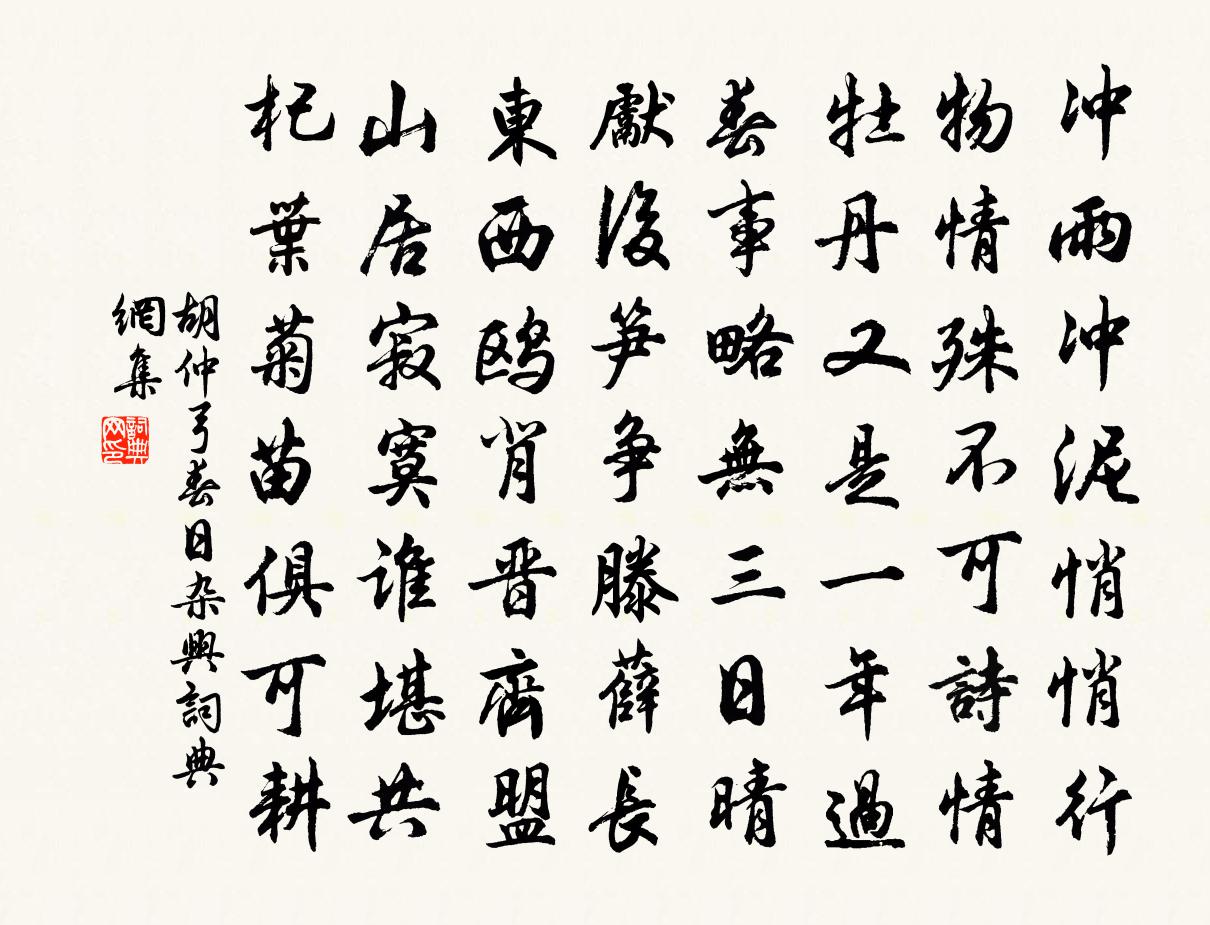 冲雨冲泥悄悄行
物情殊不可詩情
牡丹又是一年過
春事略無三日晴
獻後笋争滕薛長
東西鷗肖晋齊盟
山居寂寞誰堪共
杞葉菊苗俱可耕
胡仲弓春日杂興詞典
網集
詞典网印